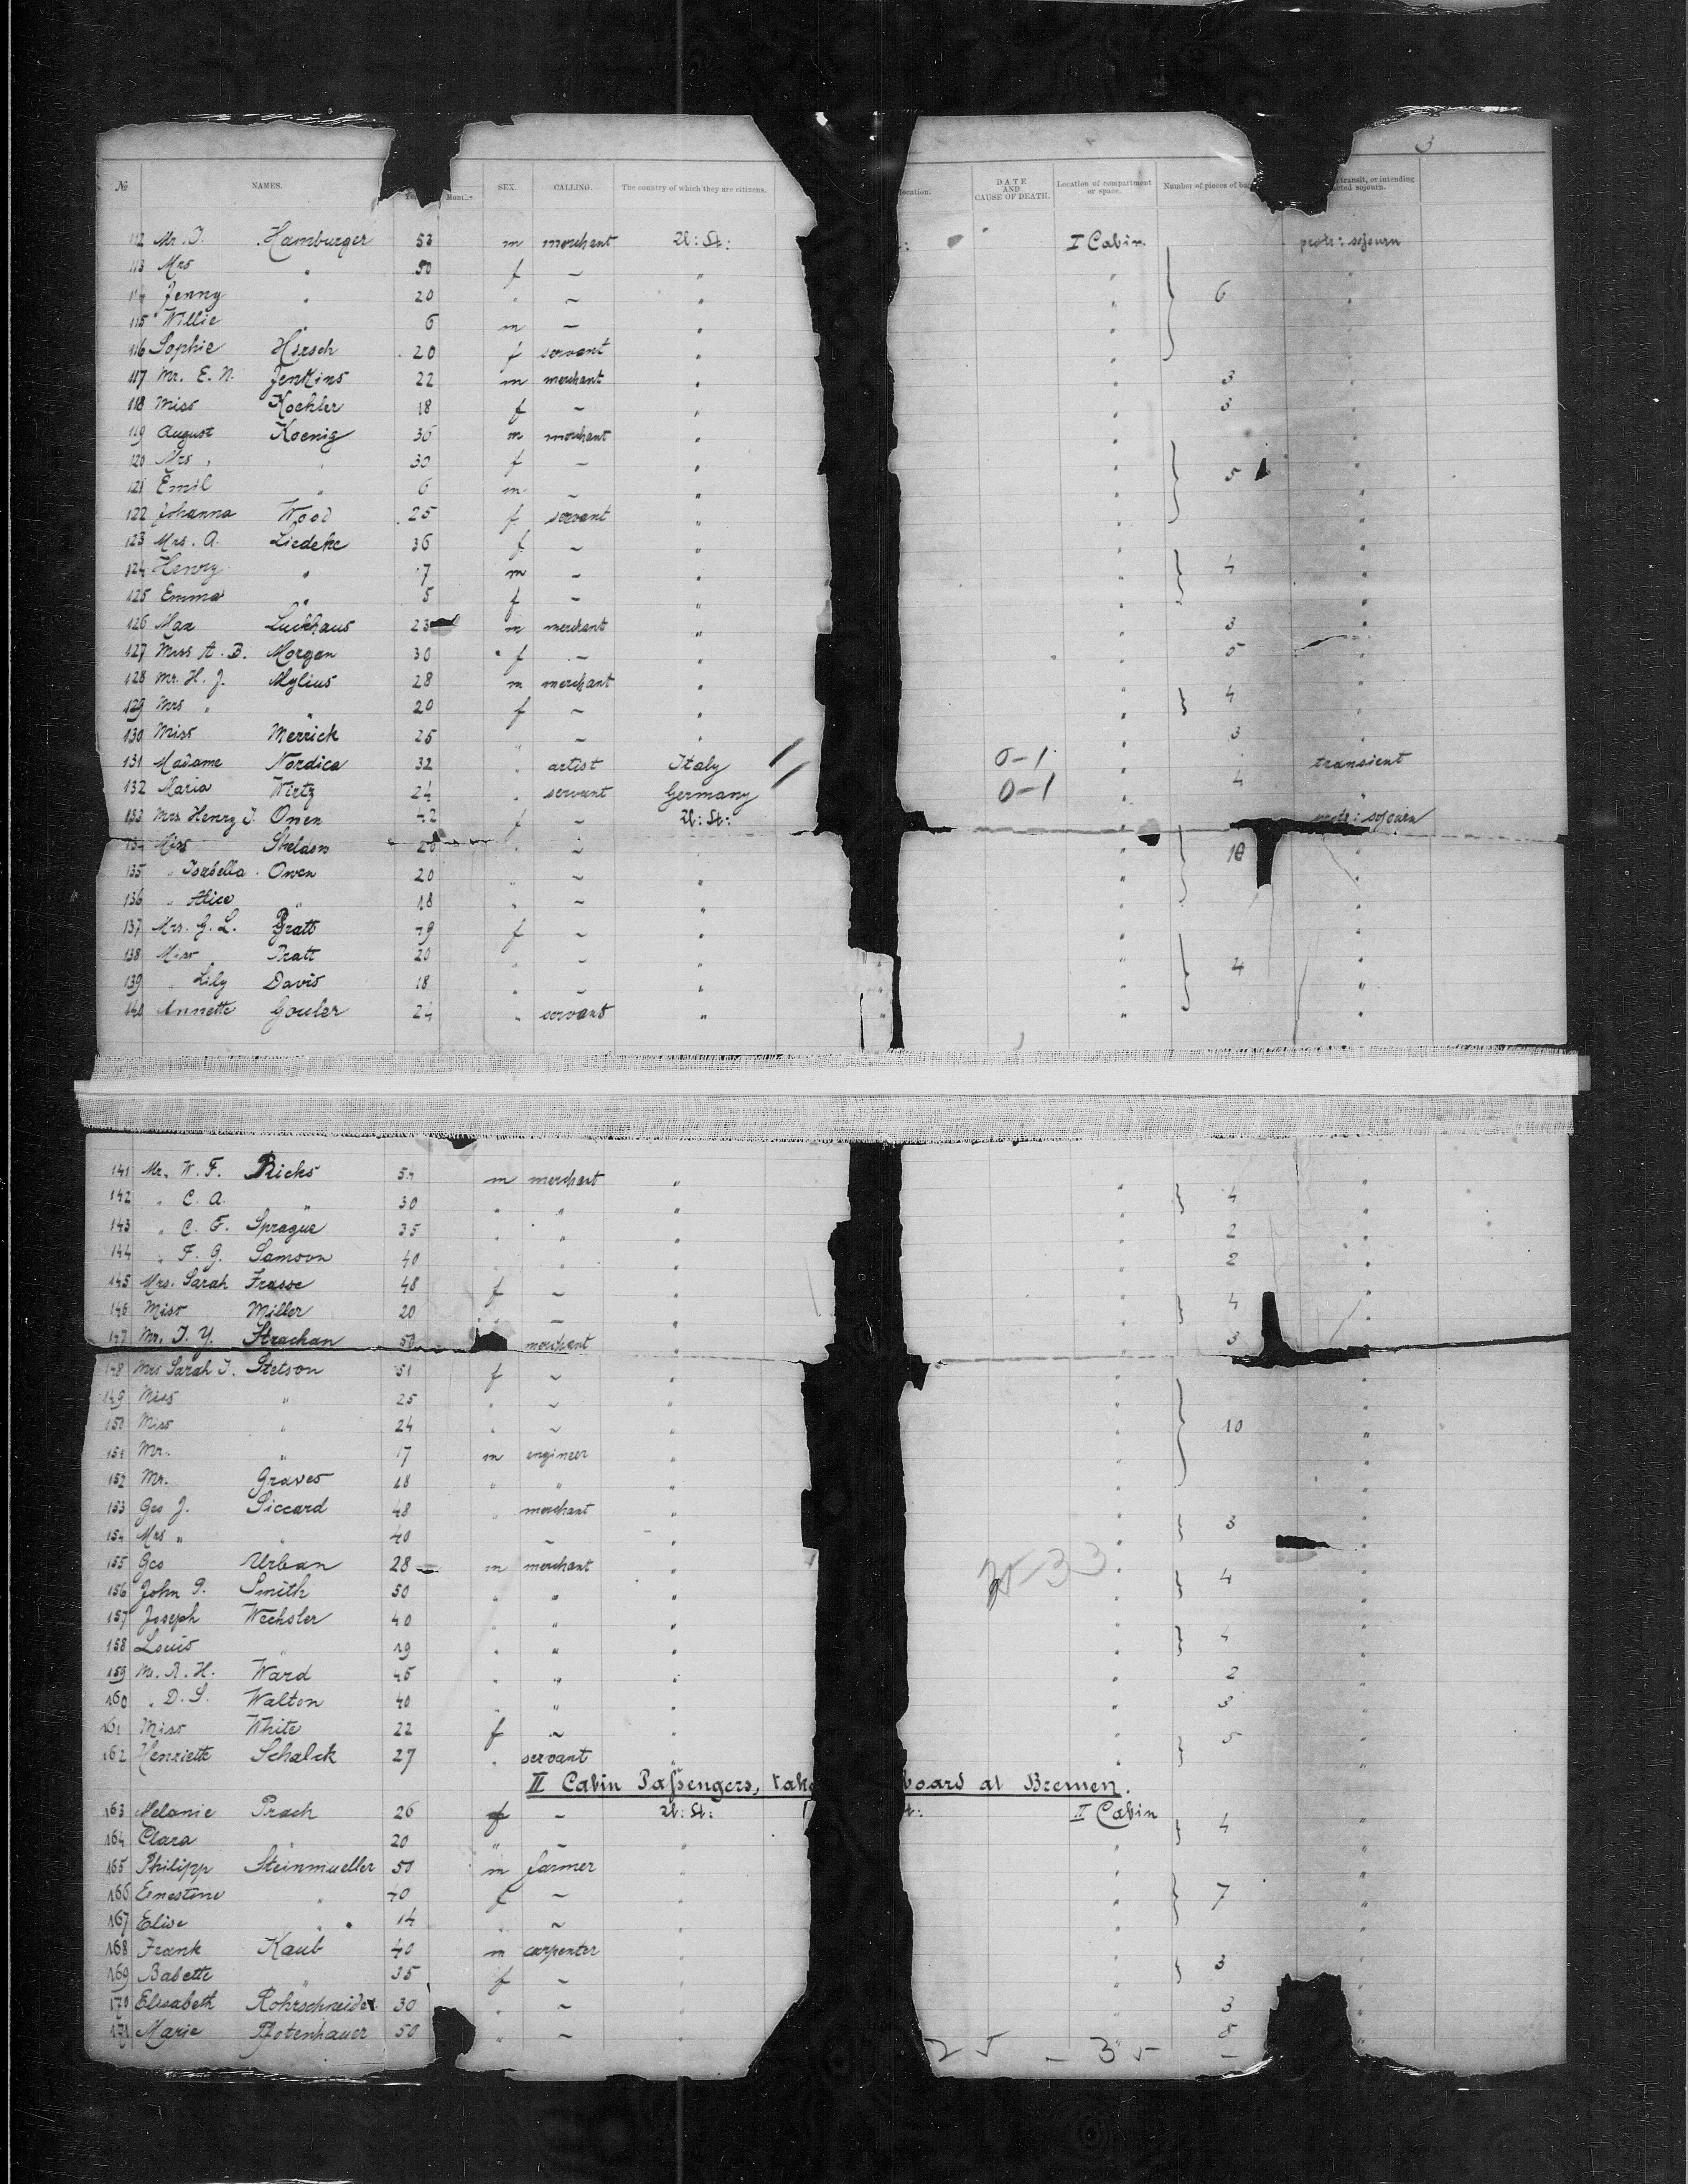 3
№ NAMES. Months SEX. CALLING. The country of which they are citizens. location. DATE AND CAUSE OF DEATH. Location of compartment or space. Number of pieces of transit, or intending sojourn.
112 Mr. J. Hamburger 53 m merchant U: St: I Cabin protr: sojourn
113 Mrs " 50 f — " "
114 Jenny " 20 " — " " 6 "
115 Willie " 6 m — " "
116 Sophie Hirsch 20 f servant " "
117 Mr. E. N. Jenkins 22 m merchant " " 3
118 Miss Kochler 18 f — " " 3
119 August Koenig 36 m merchant " "
120 Mrs " " 30 f — " " 5 "
121 Emil " 6 m — " " "
122 Johanna Wood 25 f servant " " "
123 Mrs. A. Liedeke 36 f — " " "
124 Henry " 7 m — " " 4 "
125 Emma " 5 f — " " "
126 Max Luckhaus 23 m merchant " " 3 "
127 Miss A. B. Morgan 30 f — " " 5 "
128 Mr. H. J. Mylius 28 m merchant " " 4 "
129 Mrs " " 20 f — " " "
130 Miss Merrick 25 " — " " 3 "
131 Madame Nordica 32 " artist Italy 0-1 " transient
132 Maria Wirtz 24 " servant Germany 0-1 " 4 "
133 Mrs Henry J. Owen 42 f — U: St: " sojourn
134 Miss Sheldon 20 " — " 10 "
135 " Isabella Owen 20 " — " " "
136 " Alice " 18 " — " " "
137 Mrs. G. L. Pratt 49 f — " " "
138 Miss Pratt 20 " — " " 4 "
139 " Lily Davis 18 " — " " "
140 Annette Gouler 24 " servant " " "
141 Mr. W. F. Ricks 54 m merchant " " "
142 " C. A. " 30 " " " " 4 "
143 " C. F. Sprague 35 " " " " 2 "
144 " F. G. Samson 40 " " " " 2 "
145 Mrs. Sarah Frasse 48 f — " " 4 "
146 Miss Miller 20 " — " " "
147 Mr. J. Y. Strachan 50 merchant " " 3 "
148 Mrs Sarah J. Stetson 51 f — " " "
149 Miss " 25 " — " " "
150 Miss " 24 " — " " 10 "
151 Mr. " 17 m engineer " " "
152 Mr. Graves 18 " " " " "
153 Geo J. Siccard 48 " merchant " " "
154 Mrs " " 40 — " " 3 "
155 Geo Urban 28 m merchant " "
156 John P. Smith 50 " " " " 4 "
157 Joseph Wechsler 40 " " " " "
158 Louis " 19 " " " " 4 "
159 Mr. A. H. Ward 45 " " " " 2 "
160 " D. S. Walton 40 " " " " 3 "
161 Miss White 22 f — " " 5 "
162 Henriette Schalck 27 " servant " " "
II Cabin Passengers, board at Bremen.
163 Melanie Prach 26 f — U: St: II Cabin "
164 Clara " 20 " — " 4 "
165 Philipp Steinmueller 50 m farmer " " "
166 Ernestine " 40 f — " " 7 "
167 Elise " 14 " — " " "
168 Frank Kaub 40 m carpenter " " "
169 Babette " 35 f — " " 3 "
170 Elisabeth Rohrschneider 30 " — " " 3
171 Marie Botenhauer 50 " — " " 8 "
25 - 35